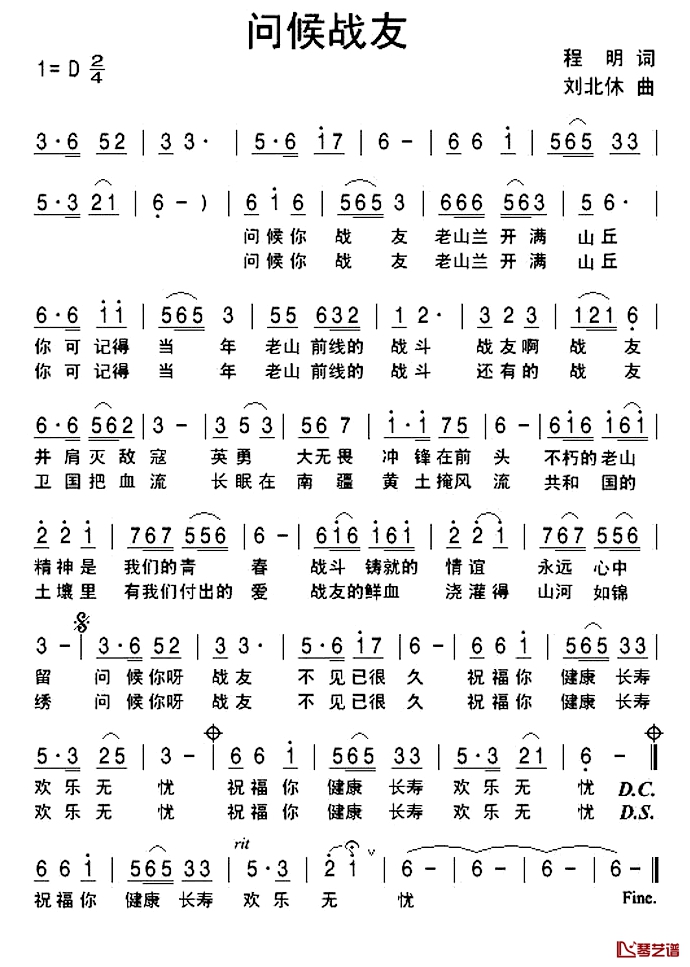 问候战友
1=D 2/4
程 明 词
刘北休 曲
3·6 52 | 3 3· | 5·6 i7 | 6 - | 6 6 i | 565 33 |
5·3 21 | 6 - ) | 6 i 6 | 565 3 | 666 563 | 5 6· |
问候你 战 友 老山兰开满 山丘
问候你 战 友 老山兰开满 山丘
6·6 ii | 565 3 | 55 632 | 1 2· | 3 2 3 | 121 6 |
你可记得 当 年 老山前线的 战斗 战友啊 战 友
你可记得 当 年 老山前线的 战斗 还有的 战 友
6·6 562 | 3 - | 3 5 3 | 56 7 | i·i 75 | 6 - | 6i6 i6i |
并肩灭敌寇 英勇 大无畏 冲锋在前 头 不朽的老山
卫国把血流 长眠在 南疆 黄土掩风 流 共和 国的
2 2 i | 767 556 | 6 - | 6i6 i6i | 2 2 i | 767 556 |
精神是 我们的青 春 战斗 铸就的 情谊 永远 心中
土壤里 有我们付出的 爱 战友的鲜血 浇灌得 山河 如锦
3 - | 3·6 52 | 3 3· | 5·6 i7 | 6 - | 6 6 i | 565 33 |
留 问候你呀 战友 不见已很 久 祝福你 健康 长寿
绣 问候你呀 战友 不见已很 久 祝福你 健康 长寿
5·3 25 | 3 - | 6 6 i | 565 33 | 5·3 21 | 6 - ‖
欢乐无 忧 祝福你 健康 长寿 欢乐无 忧 D.C.
欢乐无 忧 祝福你 健康 长寿 欢乐无 忧 D.S.
rit
6 6 i | 565 33 | 5·3 | 2 i ∨ | 6 - | 6 - | 6 - | 6 - ‖
祝福你 健康 长寿 欢乐 无 忧 Fine.
琴艺谱